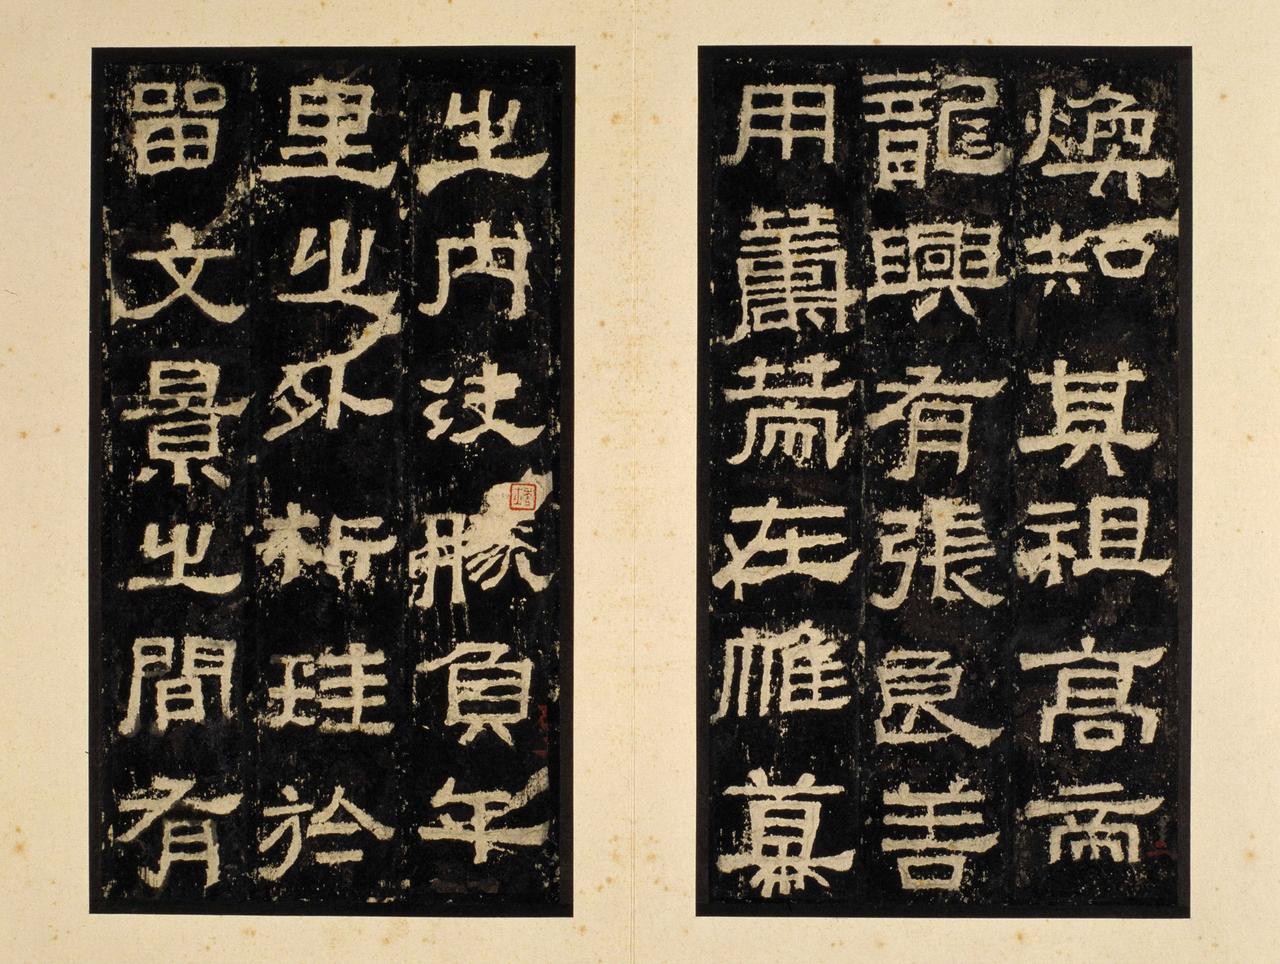 煥知其祖高帝
龍興有張良善
用籌策在帷幕
之內決勝負千
里之外析珪於
留文景之間有